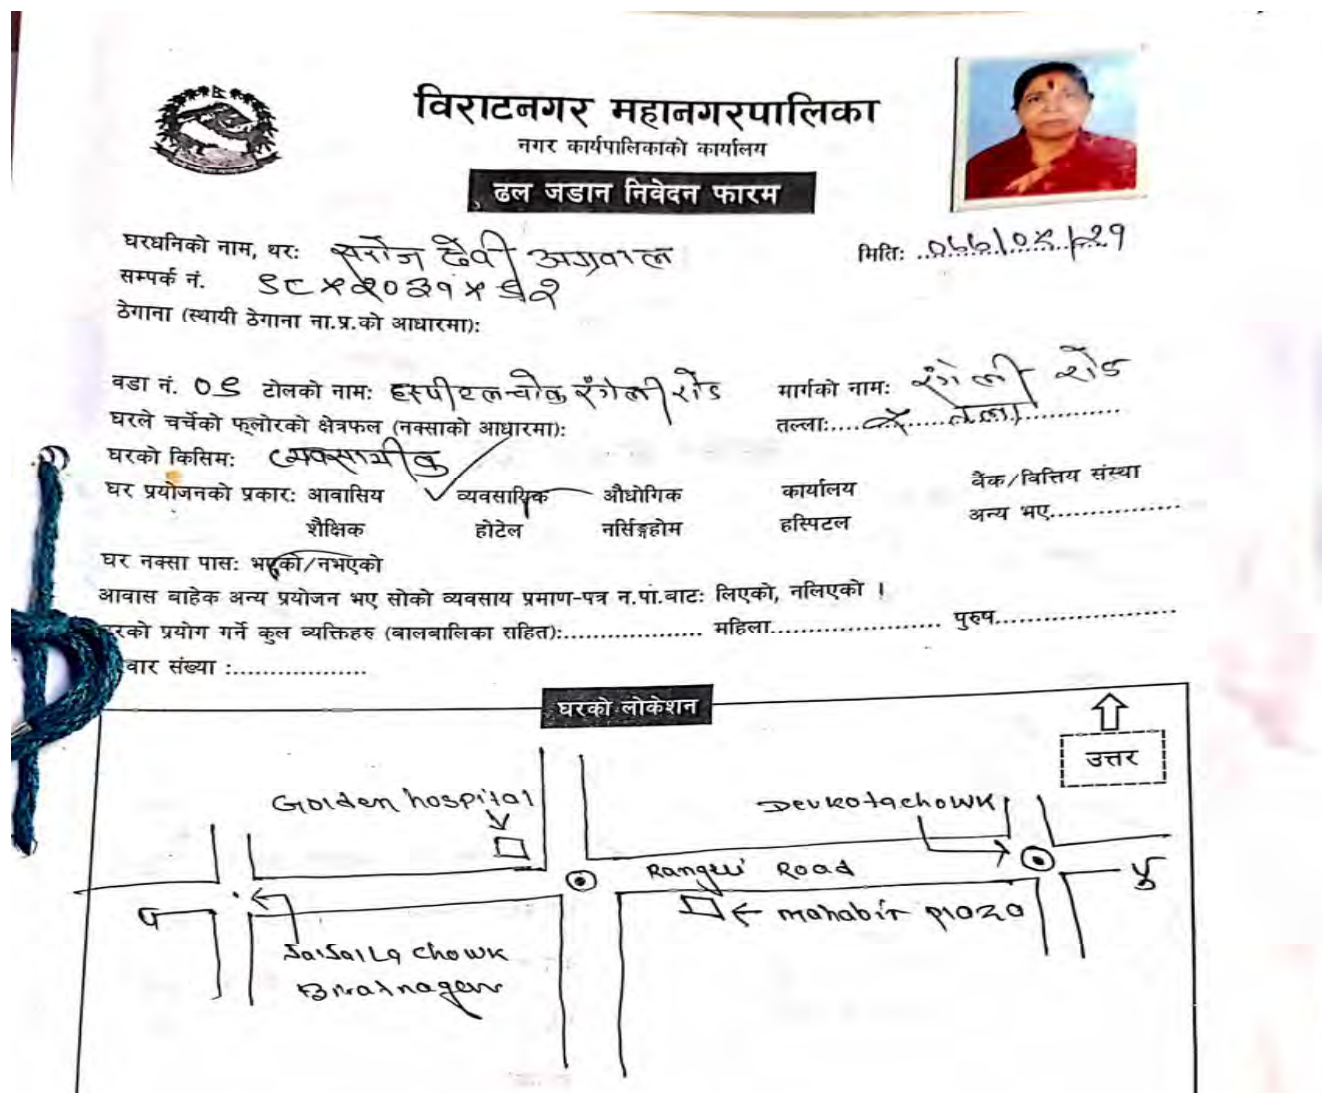 विराटनगर महानगरपालिका
नगर कार्यपालिकाको कार्यालय
ढल जडान निवेदन फारम
घरधनिको नाम, थरः सरोज देवी अग्रवाल
मितिः
सम्पर्क नं.
ठेगाना (स्थायी ठेगाना ना.प्र.को आधारमा):
वडा नं. ०९ टोलको नामः हस्पीटल चोक रंगेली रोड मार्गको नामः रंगेली रोड
घरले चर्चेको फ्लोरको क्षेत्रफल (नक्साको आधारमा): तल्लाः..... तला
घरको किसिमः व्यवसायीक
घर प्रयोजनको प्रकारः आवासिय ✓ व्यवसायिक औधोगिक कार्यालय बैंक/वित्तिय संस्था
शैक्षिक होटेल नर्सिङ्गहोम हस्पिटल अन्य भए.................
घर नक्सा पासः भएको/नभएको
आवास बाहेक अन्य प्रयोजन भए सोको व्यवसाय प्रमाण-पत्र न.पा.बाटः लिएको, नलिएको ।
रको प्रयोग गर्ने कुल व्यक्तिहरु (बालबालिका सहित):................... महिला....................... पुरुष.......................
वार संख्या :..................
घरको लोकेशन
उत्तर
Golden hospital
Devkota chowk
Rangeli Road
पू
प
mahabir plaza
Jaljala chowk
Biratnagar